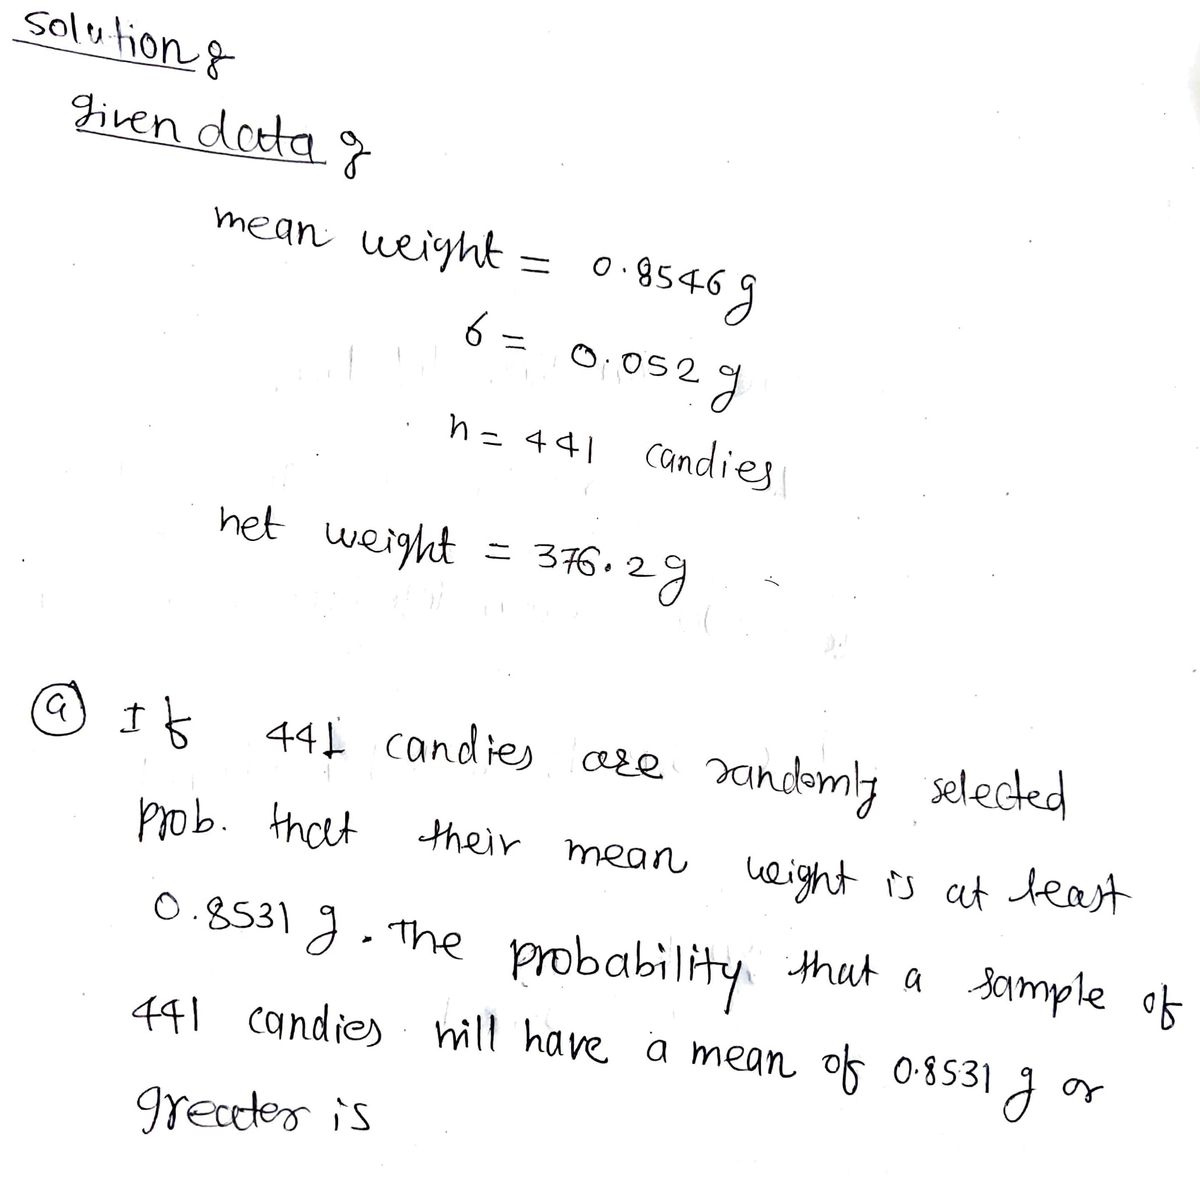 Solution :
given data :
mean weight = 0.8546 g
σ = 0.052 g
n = 441 candies
net weight = 376.2 g
(a) If 441 candies are randomly selected
prob. that their mean weight is at least
0.8531 g. The probability that a sample of
441 candies will have a mean of 0.8531 g or
greater is